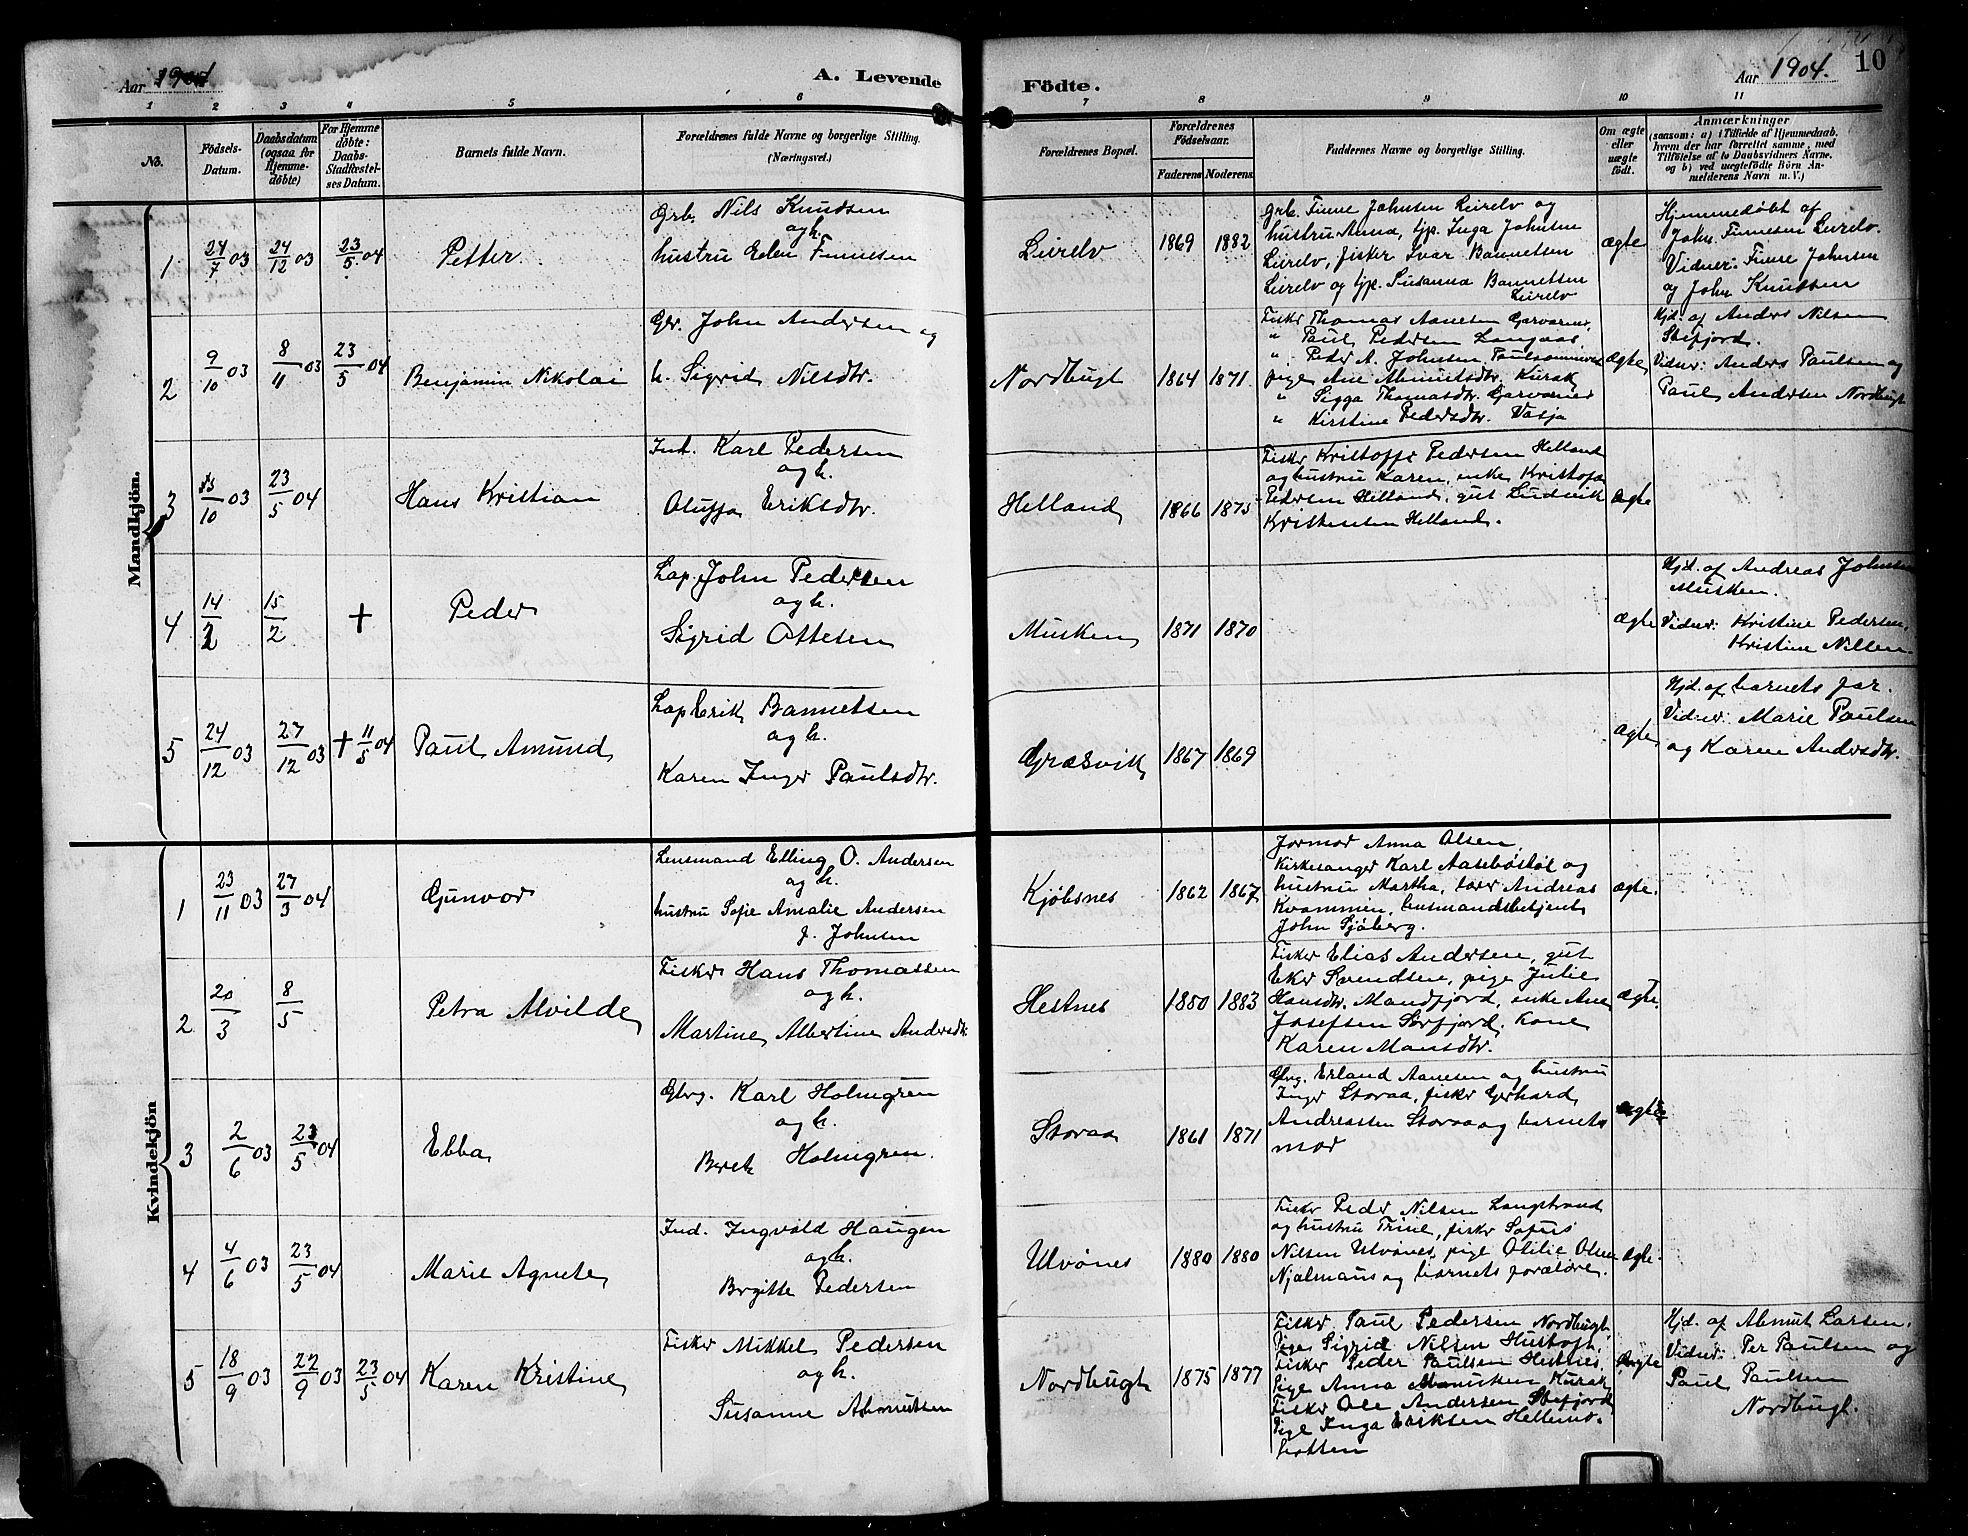 Aar 1904
A. Levende
Födte.
Aar 1904.
10
1 2 3 4 5 6 7 8 9 10 11
No.
Födsels-
Datum.
Daabsdatum
(ogsaa for
Hjemme-
døbte)
For Hjemme
døbte:
Daabs-
Stadfæstel-
ses Datum.
Barnets fulde Navn.
Forældrenes fulde Navne og borgerlige Stilling.
(Næringsvei.)
Forældrenes Bopæl.
Forældrenes
Födselsaar.
Faderens
Moderens
Faddernes Navne og borgerlige Stilling.
Om ægte
eller
uægte
födt.
Anmærkninger
(saasom: a) i Tilfælde af Hjemmedaab,
hvem der har forrettet samme, med
Tilföielse af to Daabsvidners Navne,
og b) ved uægtefödte Börn An-
melderens Navn m. V.)
Mandkjön.
1
24/7 03
24/12 03
23/5 04
Petter
Grb. Nils Knudsen
og h.
hustru Elen Finnesen
Leirelv
1869
1882
Grb. Finne Johnsen Leirelv og
hustru Anna, tjp. Inga Johnsen
Leirelv, fisker Ivar Bannetsen
Leirelv og tjp. Susanna Bannetsen
Leirelv
ægte
Hjemmedøbt af
John Finnesen Leirelv.
Vidner: Finne Johnsen
og John Knudsen
2
9/10 03
8/11 03
23/5 04
Benjamin Nikolai
Gbr. John Andersen og
h. Sigrid Nilsdtr.
Nordbugt
1864
1871.
Fisker Thomas Aanesen Garvarnes,
" Paul Pedersen Langaas
" Peder A. Johnsen
pige Ane Abmutsdtr. Kurak
" Sigga Thomasdtr. Garvarnes
" Kirstine Pedersdtr. Vasja
ægte
Hjd. af Anders Nilsen
Stefjord.
Vidner: Anders Paulsen og
Paul Andersen Nordbugt
3
/10 03
23/5 04
Hans Kristian
Ind. Karl Pedersen
og h.
Oluffa Eriksdtr.
Helland
1866
1875
Fisker Kristoffer Pedersen Helland
og hustru Karen, enke Kristofa
Pedersen Helland, gut Ludvik
Kristensen Helland.
ægte
4
14/2
15/2
+
Peder
Lap. John Pedersen
og h.
Sigrid Ottesen
Musken
1871
1870
ægte
Hjd. af Andreas Johnsen
Musken.
Vidner: Kristine Pedersen,
Kristine Nilsen.
5
24/12 03
27/12 03
+ 11/5 04
Paul Amund
Lap Erik Bannetsen
og h.
Karen Inger Paulsdtr.
Græsvik
1867
1869
ægte
Hjd. af barnets far.
Vidner: Marie Paulsen
og Karen Andersdtr.
Kvindekjön
1
23/11 03
27/3 04
Gunvor
Lensmand Elling O. Andersen
og h.
hustru Sofie Amalie Andersen
f. Johnsen
Kjöbsnes
1862
1867
Jormor Anna Olsen,
Kirkesanger Karl Aasebøstøl og
hustru Martha, lærer Andreas
Kvammen, lensmandsbetjent
John Sjøberg.
ægte.
2
20/3
8/5
Petra Alvilde
Fisker Hans Thomassen
og h.
Martine Albertine Andersdtr
Hestnes
1880
1883
Fisker Elias Andersen, gut
Eker Svendsen, pige Julie
Hansdtr. Mandfjord, enke Ane
Josefsen Sørfjord, kone
Karen Mansdtr.
ægte.
3
2/6 03
23/5 04
Ebba
Gbrg. Karl Holmgren
og h.
Beret Holmgren.
Storaa
1861
1871
Gbrg. Erland Aanesen og hustru
Inger Storaa, fisker Gerhard
Andreassen Storaa og barnets
mor
ægte
4
4/6 03
23/5 04
Marie Agnete
Ind. Ingvald Haugen
og h.
Brgitte Pedersen
Ulvönes
1880
1880
Fisker Peder Nilsen Langstrand
og hustru Trine, fisker Sofus
Nilsen Ulvönes, pige Otilie Olsen
Njalmans og barnets forældre.
ægte.
5
18/9 03
22/9 03
23/5 04
Karen Kristine
Fisker Mikkel Pedersen
og h.
Susanne Abmutsen
Nordbugt
1875
1877
Fisker Paul Pedersen Nordbugt,
Pige Sigrid Nilsen Hustoft,
Fisker Peder Paulsen Hestnes
Pige Anna Kurak
Fisker Ole Andersen Stefjord
Pige Inga Eriksen Hellemo-
botten
ægte
Hjd. af Abmut Larsen.
Vidner: Per Paulsen og
Paul Paulsen
Nordbugt.